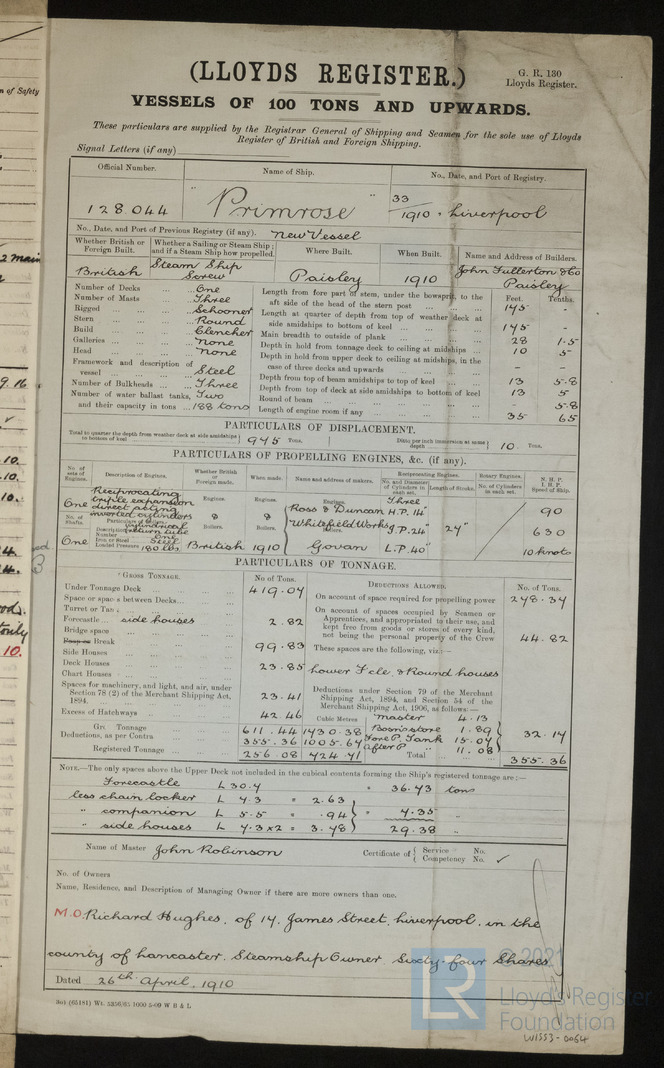 n of Safety
2 main
9.16
10.
10.
10.
4.
4.
ods.
tonly
10.
(LLOYDS REGISTER.)
G. R. 130
Lloyds Register.
VESSELS OF 100 TONS AND UPWARDS.
These particulars are supplied by the Registrar General of Shipping and Seamen for the sole use of Lloyds
Register of British and Foreign Shipping.
Signal Letters (if any)
Official Number. Name of Ship. No., Date, and Port of Registry.
128044 " Primrose " 33/1910 . Liverpool
No., Date, and Port of Previous Registry (if any). New Vessel
Whether British or Foreign Built. Whether a Sailing or Steam Ship; and if a Steam Ship how propelled. Where Built. When Built. Name and Address of Builders.
British Steam Ship Screw Paisley 1910 John Fullerton & Co Paisley
Number of Decks ... One
Number of Masts ... Three
Rigged ... Schooner
Stern ... Round
Build ... Clencher
Galleries ... None
Head ... None
Framework and description of vessel ... Steel
Number of Bulkheads ... Three
Number of water ballast tanks, Two
and their capacity in tons ... 188 tons
Feet. Tenths.
Length from fore part of stem, under the bowsprit, to the aft side of the head of the stern post ... 145 -
Length at quarter of depth from top of weather deck at side amidships to bottom of keel ... 145 -
Main breadth to outside of plank ... 28 1.5
Depth in hold from tonnage deck to ceiling at midships ... 10 5
Depth in hold from upper deck to ceiling at midships, in the case of three decks and upwards ... - -
Depth from top of beam amidships to top of keel ... 13 5.8
Depth from top of deck at side amidships to bottom of keel 13 5
Round of beam ... 5.8
Length of engine room if any ... 35 65
PARTICULARS OF DISPLACEMENT.
Total to quarter the depth from weather deck at side amidships to bottom of keel 945 Tons. Ditto per inch immersion at same depth 10 Tons.
PARTICULARS OF PROPELLING ENGINES, &c. (if any).
No. of sets of Engines. Description of Engines. Whether British or Foreign made. When made. Name and address of makers. Reciprocating Engines. No. and Diameter of Cylinders in each set. Length of Stroke. Rotary Engines. No. of Cylinders in each set. N. H. P. I. H. P. Speed of Ship.
One Reciprocating triple expansion direct acting inverted cylinders
Engines. Engines. Engines. Three
Ross & Duncan H.P. 14" 90
Whitefield Works I.P. 24" 24" 630
Govan L.P. 40" 10 knots
No. of Shafts. Particulars of Boilers. Boilers. Boilers. Boilers.
Description Cylindrical return tube
Number One
Iron or Steel Steel
Loaded Pressure 180 lbs.
One British 1910
PARTICULARS OF TONNAGE.
GROSS TONNAGE. No of Tons.
Under Tonnage Deck ... 419.07
Space or spaces between Decks ...
Forecastle ... side houses 2.82
Bridge space
Poop or Break 99.83
Side Houses
Deck Houses 23.85
Chart Houses
Spaces for machinery, and light, and air, under Section 78 (2) of the Merchant Shipping Act, 1894. ... 23.41
Excess of Hatchways ... 42.46
Gross Tonnage 611.44
Deductions, as per Contra 355.36
Registered Tonnage 256.08
Cubic Metres
1730.38
1005.67
724.71
DEDUCTIONS ALLOWED. No. of Tons.
On account of space required for propelling power 278.34
On account of spaces occupied by Seamen or Apprentices, and appropriated to their use, and kept free from goods or stores of every kind, not being the personal property of the Crew 44.82
These spaces are the following, viz:—
Lower F'cle, & Round houses
Deductions under Section 79 of the Merchant Shipping Act, 1894, and Section 54 of the Merchant Shipping Act, 1906, as follows:—
Master 4.13
Boson's store 1.89
Fore P. Tank 15.04
After P. " 11.08
32.14
Total 355.36
NOTE.—The only spaces above the Upper Deck not included in the cubical contents forming the Ship's registered tonnage are:—
Forecastle L 30.4 " 36.73 tons
less chain locker L 4.3 " 2.63
" companion L 5.5 " .94 " 7.35 "
" side houses L 7.3x2 = 3.78 29.38 "
Name of Master John Robinson Certificate of { Service No. Competency No. ✓
No. of Owners
Name, Residence, and Description of Managing Owner if there are more owners than one.
M.O. Richard Hughes, of 14, James Street, Liverpool, in the
county of Lancaster. Steamship Owner, Sixty-four Shares
Dated 26th April, 1910
© 2021
LR Lloyd's Register
Foundation
W1553-0054